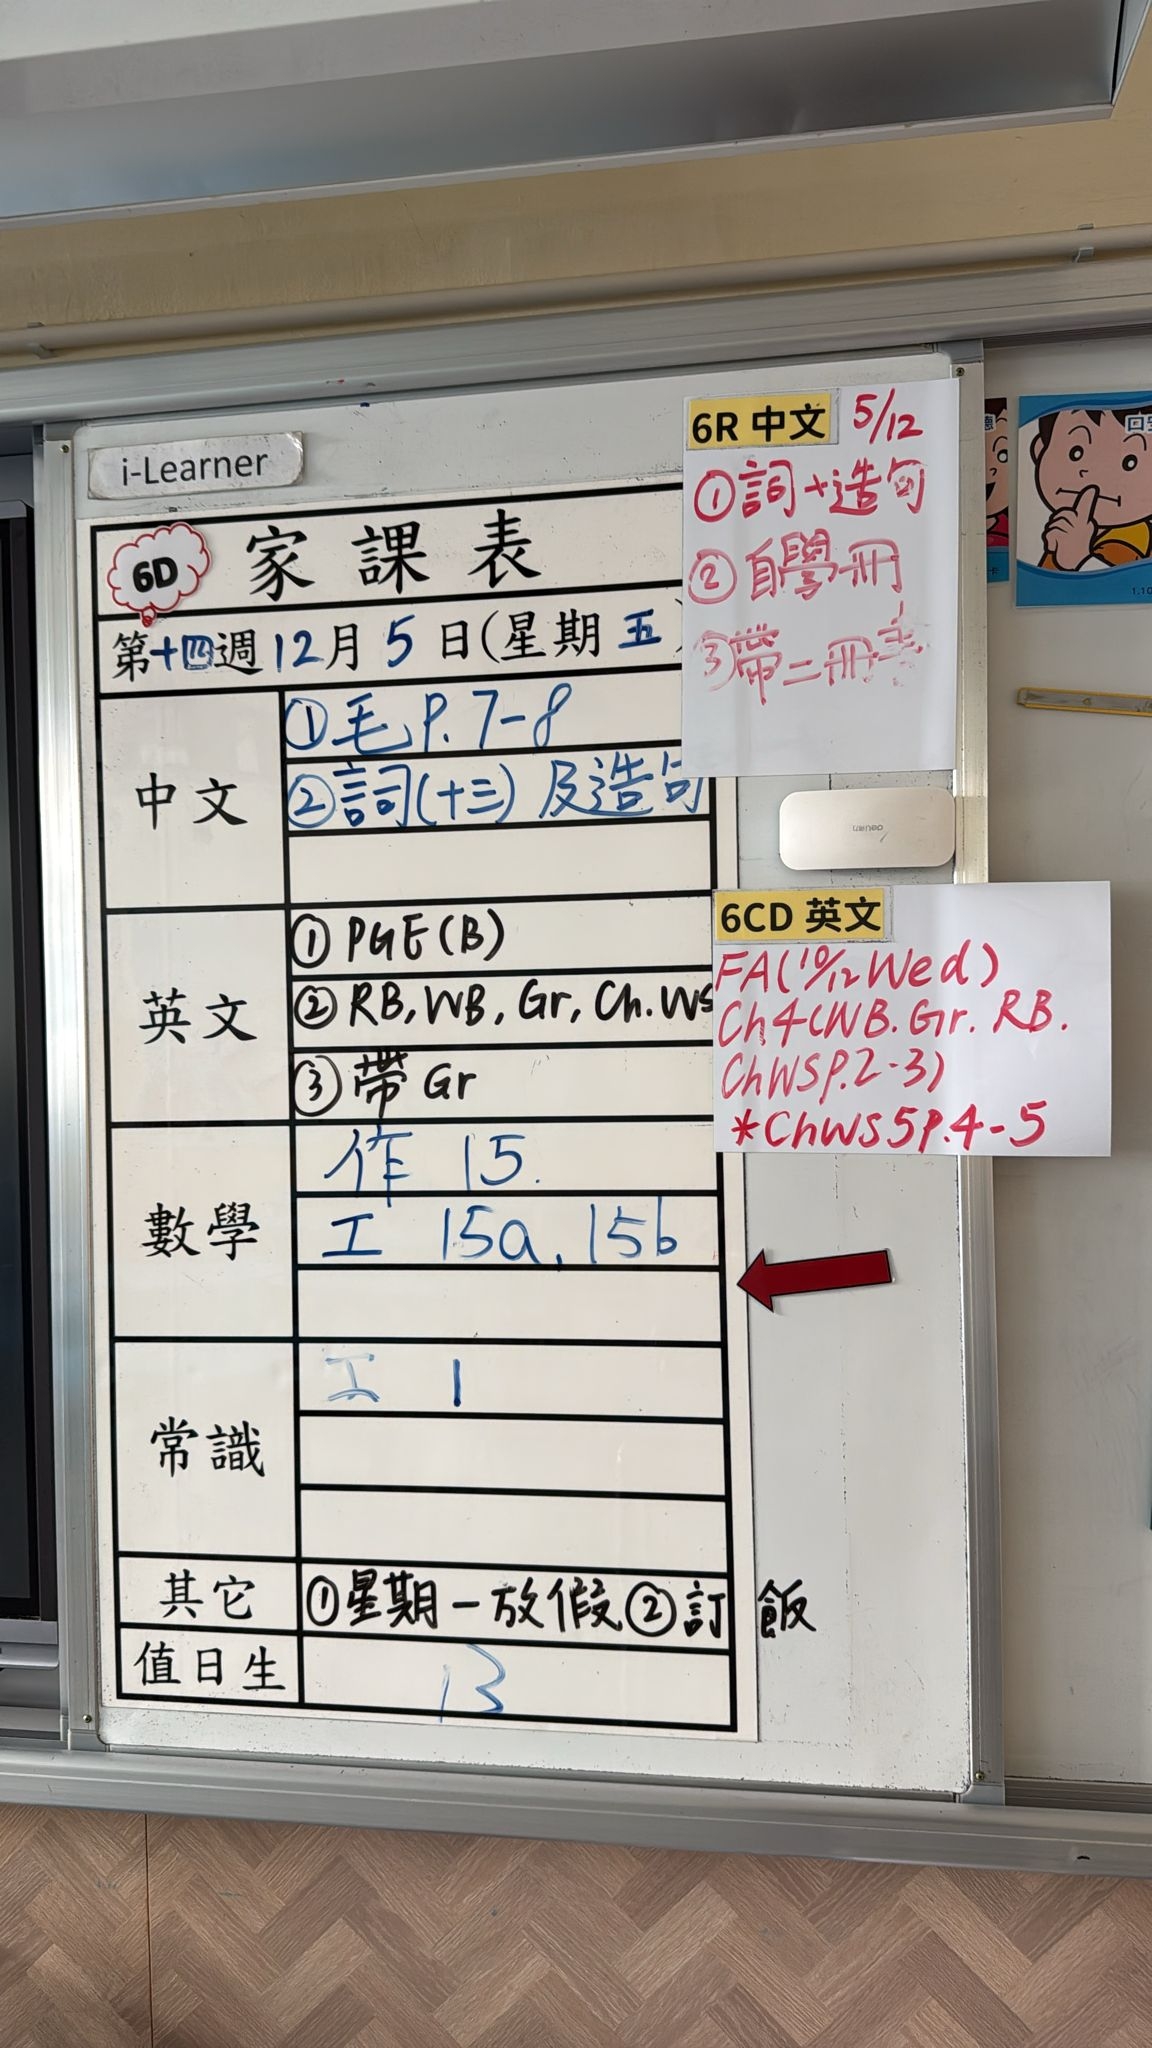 i-Learner
6D 家課表
第十四週12月5日(星期五)
中文
①毛P.7-8
②詞(十三)及造句
英文
① PGE(B)
② RB, WB, Gr, Ch.WS
③ 帶 Gr
數學
作 15.
工 15a, 15b
常識
工 1
其它
①星期一放假②訂飯
值日生
13
6R 中文 5/12
①詞+造句
②自學冊
③帶二冊書
deli
6CD 英文
FA(10/12 Wed)
Ch4(WB. Gr. RB.
ChWSP.2-3)
*ChWS5P.4-5
1.10